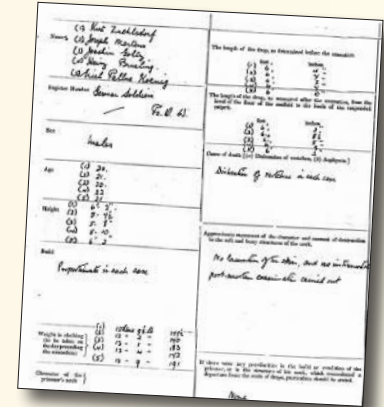 (1) Kurt Zuehlsdorf
Names (2) Joseph Mertens
(3) Joachim Goltz
(4) Heinz Brueling
(5) Erich Pallme Koenig
Register Number German Soldiers
P.O.W.
Sex
males
Age
(1) 20.
(2) 21.
(3) 20.
(4) 22
(5) 21
Height
(1) 6'
(2) 5'
(3) 5' 8"
(4) 5' 10"
(5) 6' 2"
Build
Proportionate in each case
Weight in clothing
(to be taken on
the day preceding
the execution)
(1)
(2)
(3)
(4)
(5)
Character of the
prisoner's neck
The length of the drop, as determined before the execution
feet inches
(1) 6
(2) 6
(3) 6
(4) 6
(5) 6
The length of the drop, as measured after the execution, from the
level of the floor of the scaffold to the heels of the suspended
culprit.
feet inches
(1) 6
(2) 6
(3) 6
(4) 6
(5) 6
Cause of death [(a) Dislocation of vertebræ, (b) Asphyxia.]
Dislocation of vertebrae in each case
Approximate statement of the character and amount of destruction
to the soft and bony structures of the neck.
No laceration of the skin, and no internal
post-mortem examination carried out
If there were any peculiarities in the build or condition of the
prisoner, or in the structure of his neck, which necessitated a
departure from the scale of drops, particulars should be stated.
None